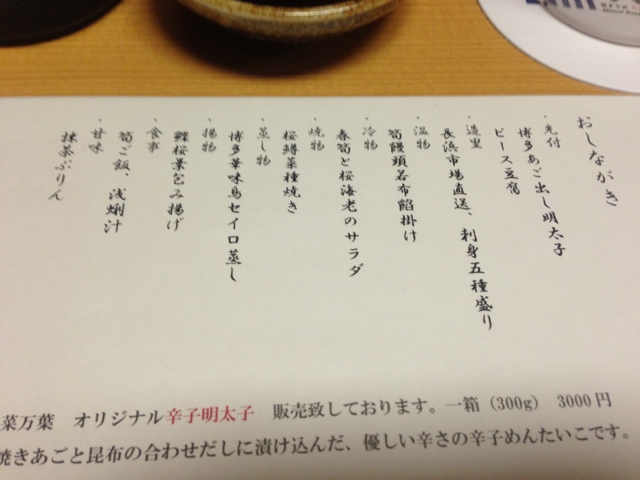 おしながき
・先付
博多あご出し明太子
ピース豆腐
・造里
長浜市場直送、刺身五種盛り
・温物
筍饅頭若布餡掛け
・冷物
春筍と桜海老のサラダ
・焼物
桜鱒菜種焼き
・蒸し物
博多華味鳥セイロ蒸し
・揚物
鰹桜葉包み揚げ
・食事
筍ご飯、浅蜊汁
・甘味
抹茶ぷりん
菜万葉 オリジナル辛子明太子 販売致しております。一箱（300g） 3000円
焼きあごと昆布の合わせだしに漬け込んだ、優しい辛さの辛子めんたいこです。